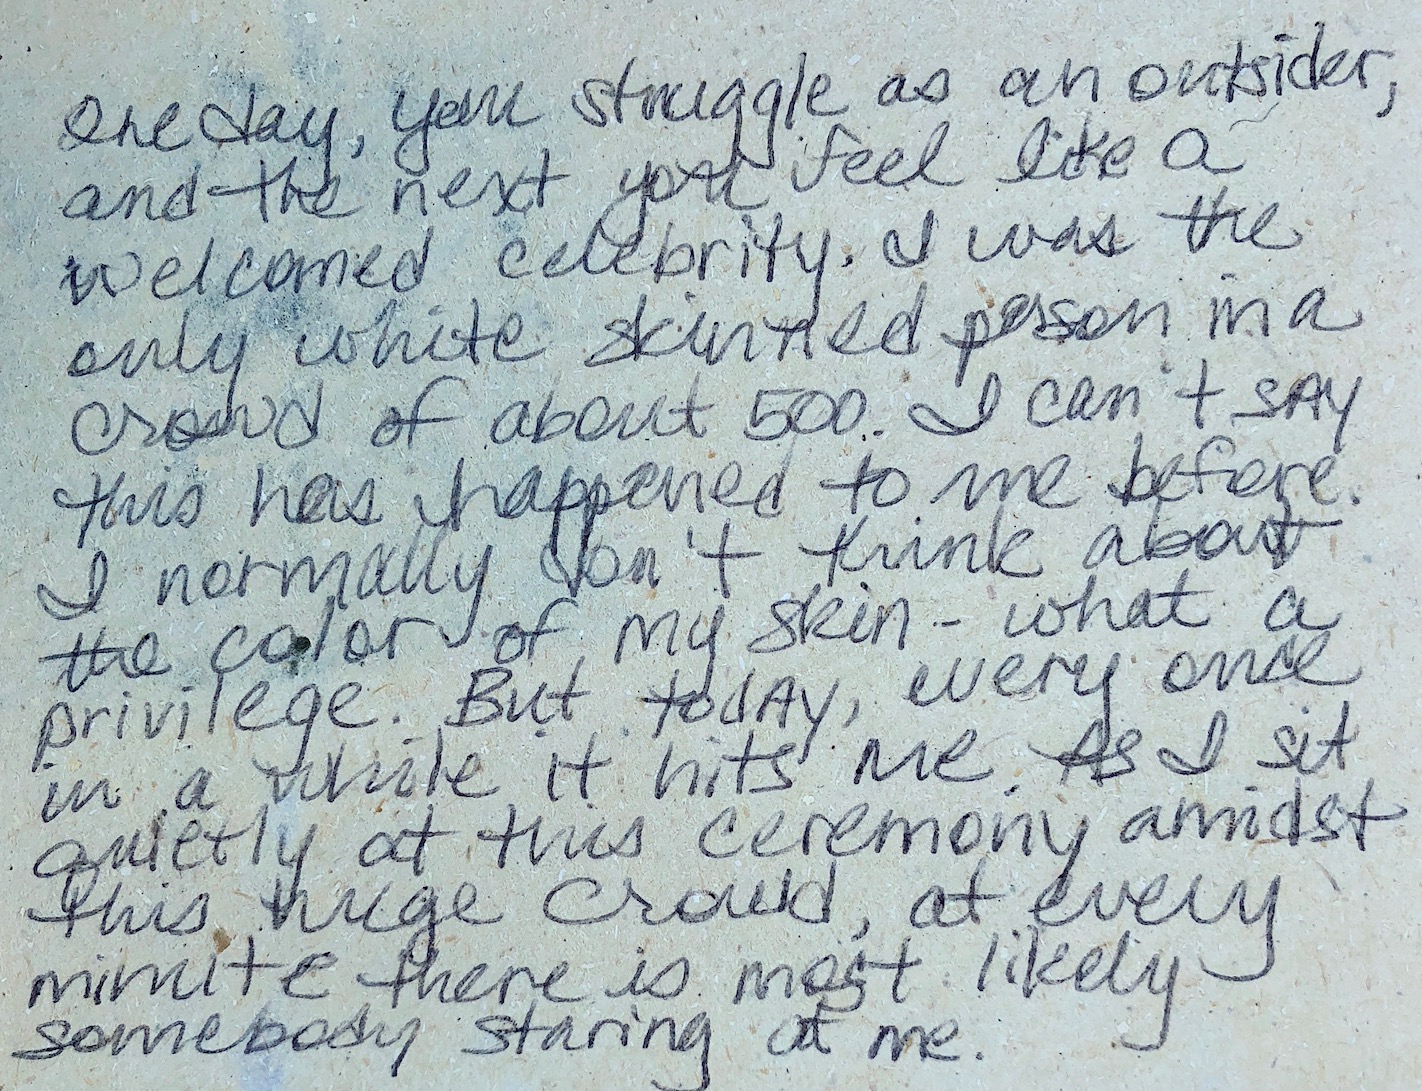 One day, you struggle as an outsider,
and the next you feel like a
welcomed celebrity. I was the
only white skinned person in a
crowd of about 500. I can't SAy
this has happened to me before.
I normally don't think about
the color of my skin - what a
privilege. But todAy, every once
in a while it hits me As I sit
quietly at this ceremony amidst
this huge crowd, at every
minute there is most likely
somebody staring at me.